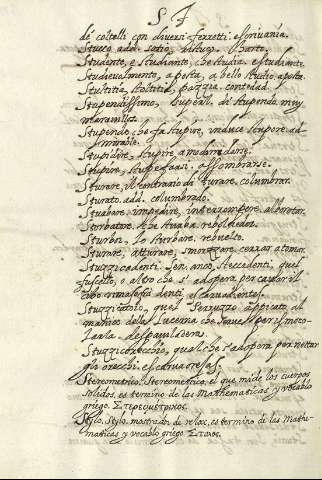 S T
de' coltelli con diversi ferretti. escrivanía.
Stucco add. satio, harto.
Studente, e studiante, che studia. estudiante.
Studievolmente, a posta, a bello studio. aposta.
Stultitia, stoltitia, pazzia. tontedad.
Stupendissimo, superl. di stupendo. muy
maravilloso.
Stupendo, che fa stupire, induce stupore. ad-
mirable.
Stupidire, stupire,
Stupire, stupefarsi. assombrarse.
Sturare, il contrario di turare.
Sturato. add.
Sturbare. impedire, interrompere. alborotar.
Sturbatore. che sturba. reboldedor.
Sturbo. lo sturbare. rebuelto.
Sturare, atturare, smorzare. cerrar
Stuzzicadenti. sen. anco, steccadenti, quel
fuscello, o altro che s'adopera per cavar il
cibo rimasto fra denti. escarvadientes.
Stuzzicatoio, quel ferruzzo appicato al
manico della Lucerna che serve per smoc-
larla. despaviladera.
Stuzzicorecchio, quel che s'adopera per nettar
gli orecchi. escarvaorejas.
Stereometrico. Stereometrico. el que mide los cuerpos
solidos, es termino de las Mathematicas y vocablo
griego. Στερεομετρικος.
Stylo. Stylo. mostrador de relox, es termino de las Mathe-
maticas y vocablo griego. Στυλος.